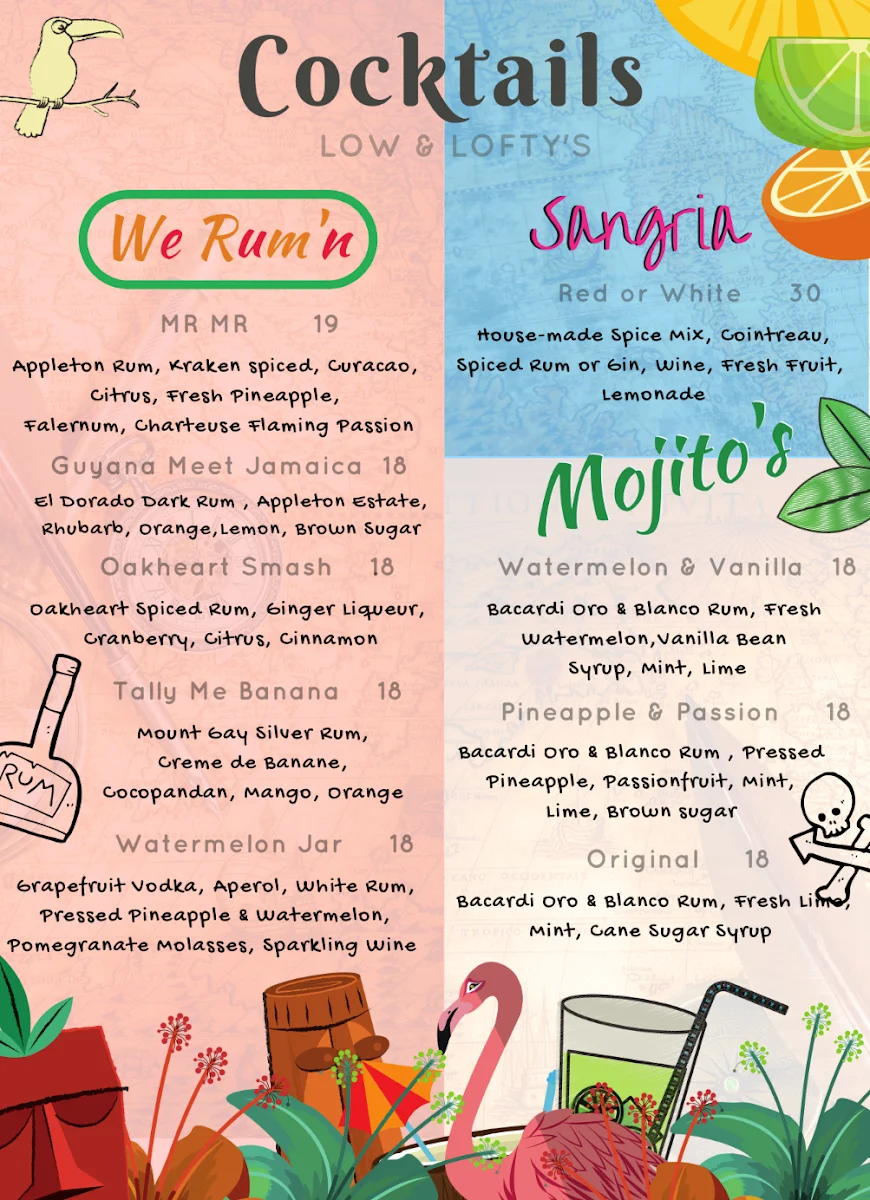 Cocktails
LOW & LOFTY'S
We Rum'n
MR MR 19
Appleton Rum, Kraken spiced, Curacao,
Citrus, Fresh Pineapple,
Falernum, Charteuse Flaming Passion
Guyana Meet Jamaica 18
El Dorado Dark Rum , Appleton Estate,
Rhubarb, Orange,Lemon, Brown Sugar
Oakheart Smash 18
Oakheart Spiced Rum, Ginger Liqueur,
Cranberry, Citrus, Cinnamon
Tally Me Banana 18
Mount Gay Silver Rum,
Creme de Banane,
Cocopandan, Mango, Orange
RUM
Watermelon Jar 18
Grapefruit Vodka, Aperol, White Rum,
Pressed Pineapple & Watermelon,
Pomegranate Molasses, Sparkling Wine
Sangria
Red or White 30
House-made Spice Mix, Cointreau,
Spiced Rum or Gin, Wine, Fresh Fruit,
Lemonade
Mojito's
Watermelon & Vanilla 18
Bacardi Oro & Blanco Rum, Fresh
Watermelon,Vanilla Bean
Syrup, Mint, Lime
Pineapple & Passion 18
Bacardi Oro & Blanco Rum , Pressed
Pineapple, Passionfruit, Mint,
Lime, Brown sugar
Original 18
Bacardi Oro & Blanco Rum, Fresh Lime,
Mint, Cane Sugar Syrup